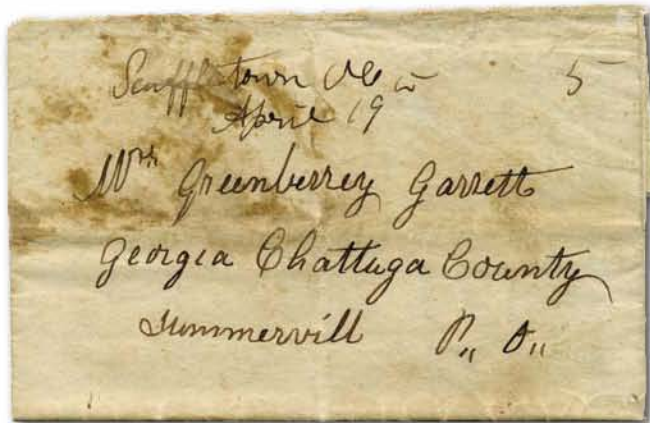 Scuffletown 5
April 19
Greenberrey Garrett
Georgia Chattuga County
Summervill P,, O,,